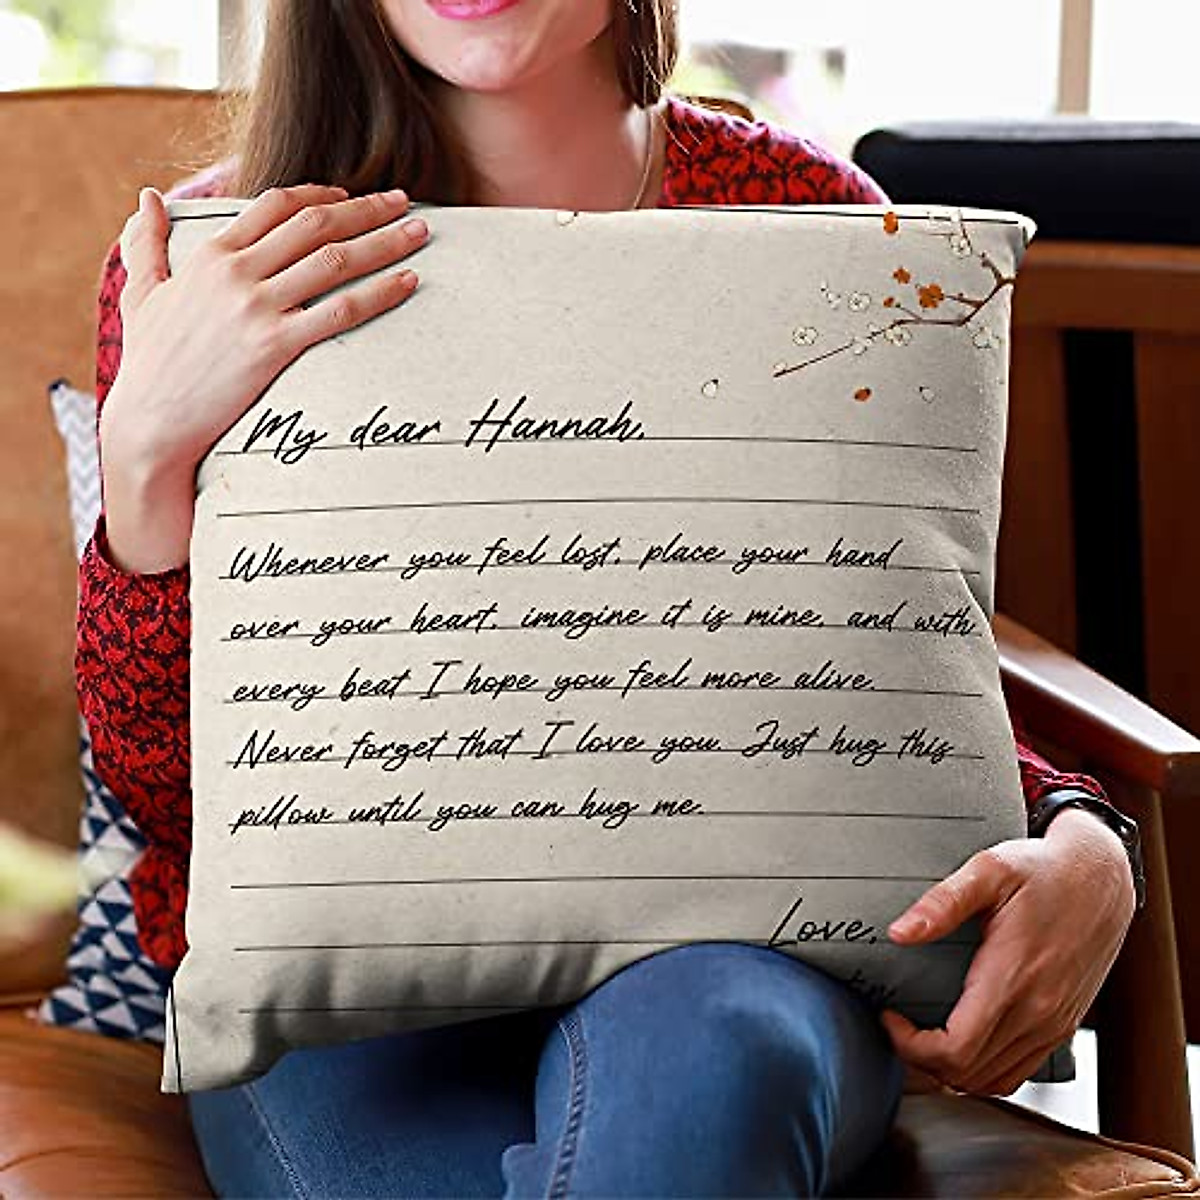 My dear Hannah,
Whenever you feel lost, place your hand
over your heart, imagine it is mine, and with
every beat I hope you feel more alive.
Never forget that I love you. Just hug this
pillow until you can hug me.
Love,